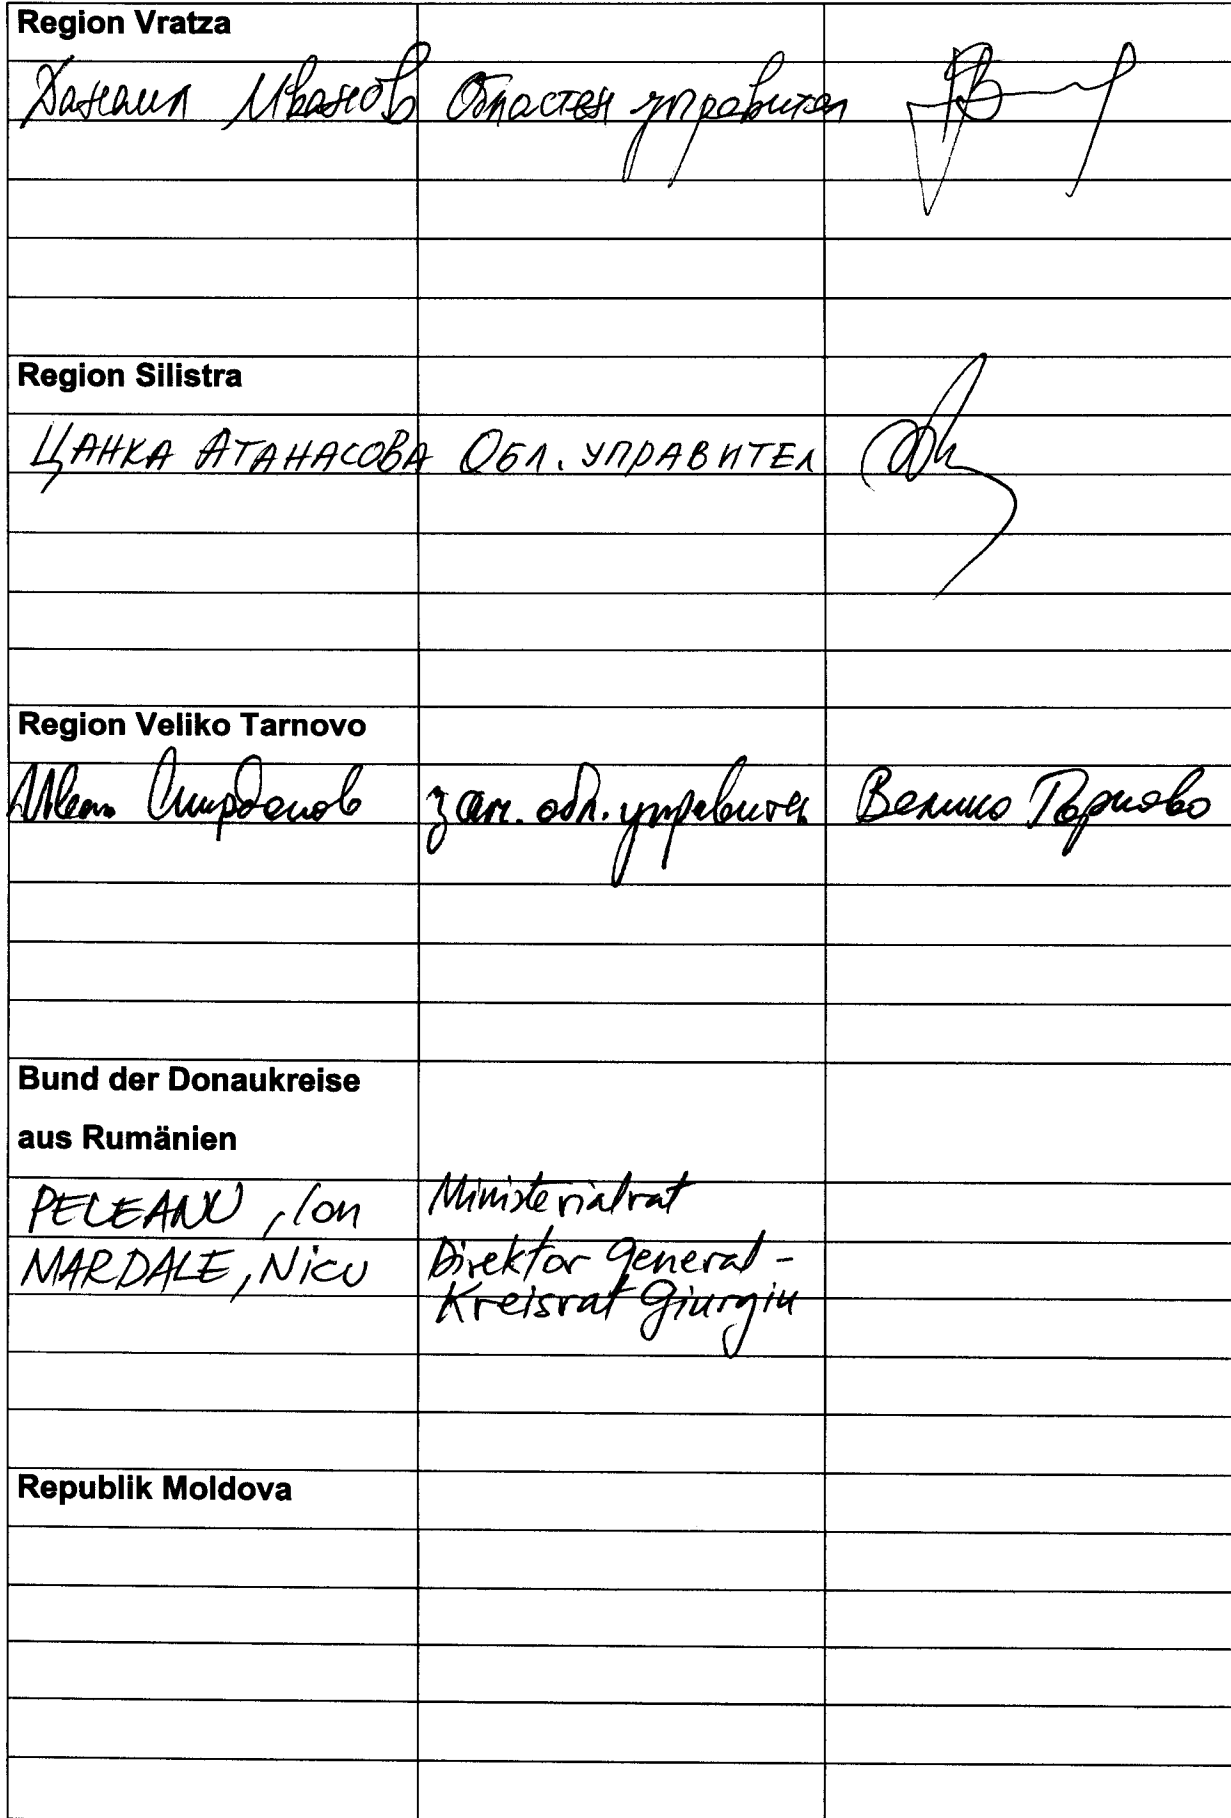 Region Vratza
Данаил Иванов Областен управител
Region Silistra
ЦАНКА АТАНАСОВА ОБЛ. УПРАВИТЕЛ
Region Veliko Tarnovo
зам. обл. управител Велико Търново
Bund der Donaukreise
aus Rumänien
PELEANU, Ion Ministerialrat
MARDALE, Nicu Direktor general -
Kreisrat Giurgiu
Republik Moldova